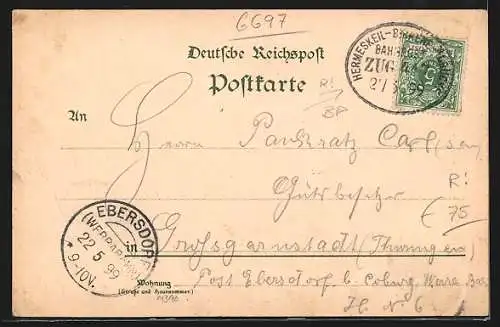 6697
Deutsche Reichspost
Postkarte
HERMESKEIL-
BAHNPOST
ZUG
5 99
5
R!
BP
An
Herrn Pankratz Carl (sen
Gutsbesitzer
R!
€ 75
in Grossgarnstadt (Thüringen)
Post Ebersdorf b. Coburg, Werra Bahn
H. N. 6
Wohnung
(Straße und Hausnummer)
EBERSDORF
(WERRABAHN)
22 5 99
* 9-10V.